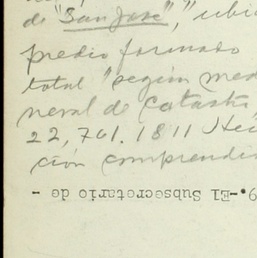 de "San José", ubi
predio formado
total "según med
neral de Catastr
22,761.1811 Héc
ción comprendi
9.-El Subsecretario de -